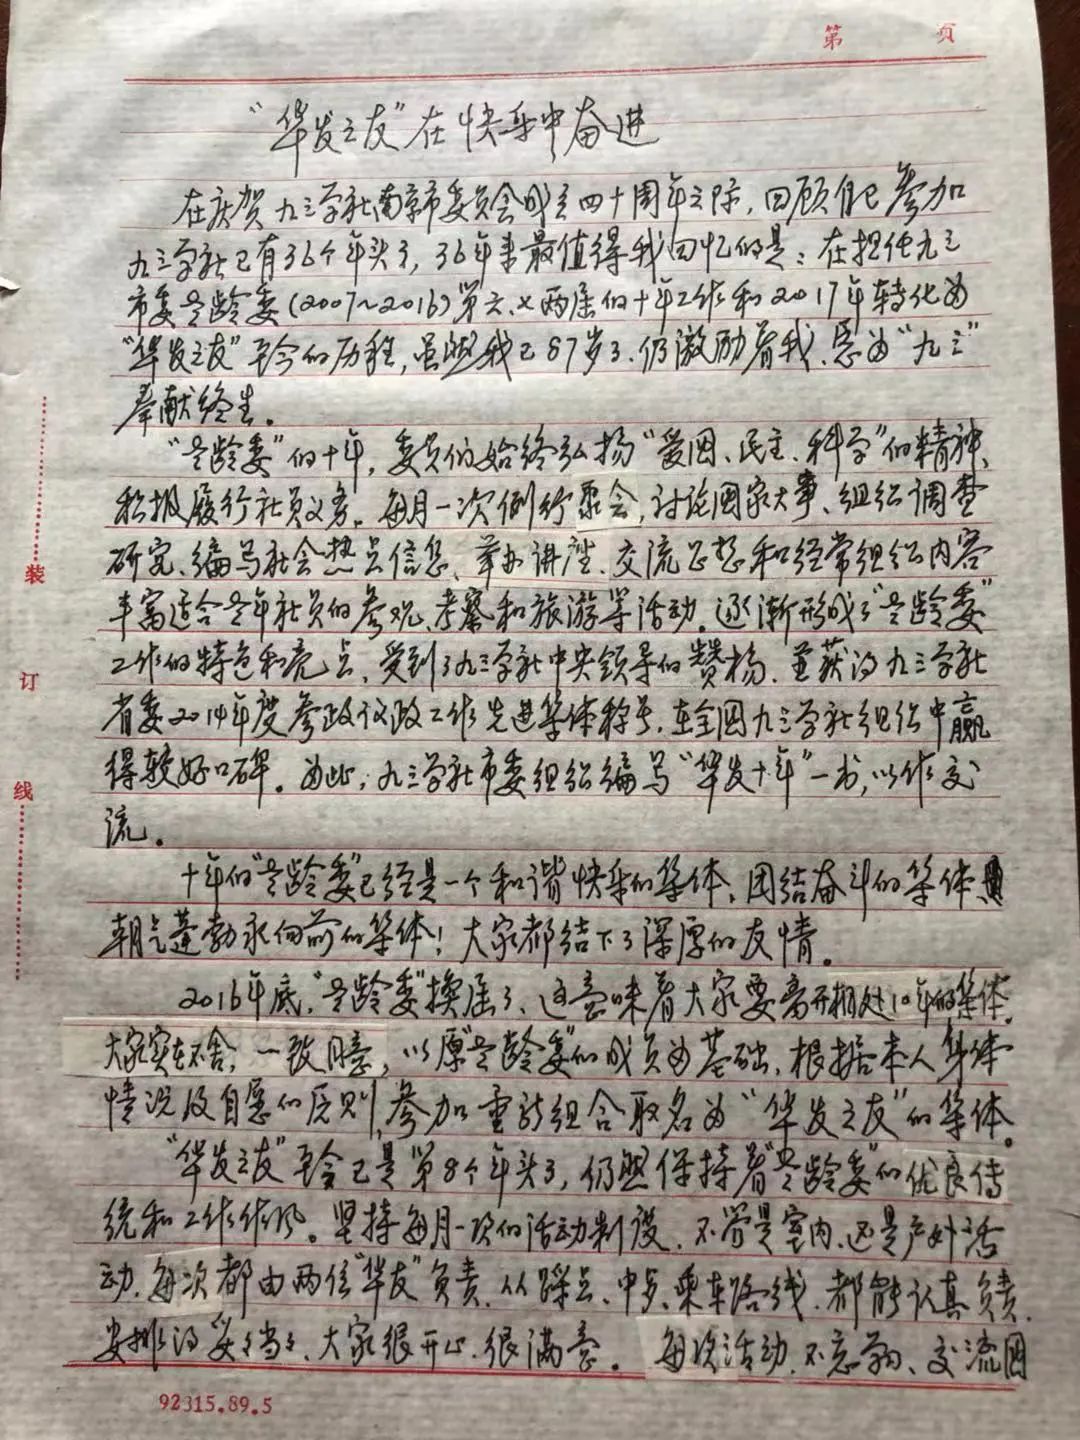 第 页
“华发之友”在快乐中奋进
在庆贺九三学社南京市委员会成立四十周年之际，回顾自己参加
九三学社已有36个年头了，36年来最值得我回忆的是：在担任九三
市委老龄委（2007～2016）第六、七两届的十年工作和2017年转化为
“华发之友”至今的历程，虽然我已87岁了、仍激励着我、愿为“九三”
奉献终生。
“老龄委”的十年，委员们始终弘扬“爱国、民主、科学”的精神、
积极履行社员义务。每月一次例行聚会，讨论国家大事、组织调查
研究、编写社会热点信息、举办讲座、交流思想和经常组织内容
丰富适合老年社员的参观、考察和旅游等活动。逐渐形成了“老龄委”
工作的特色和亮点，受到了九三学社中央领导的赞扬、并获得九三学社
省委2014年度参政议政工作先进集体称号，在全国九三学社组织中赢
得较好口碑。为此，九三学社市委组织编写“华发十年”一书，以作交
流。
十年的“老龄委”已经是一个和谐快乐的集体、团结奋斗的集体、
朝气蓬勃永向前的集体！大家都结下了深厚的友情。
2016年底，“老龄委”换届了、这意味着大家要离开相处10年的集体，
大家实在不舍，一致同意，以原“老龄委”的成员为基础，根据本人身体
情况及自愿的原则，参加重新组合取名为“华发之友”的集体。
“华发之友”至今已是第8个年头了，仍然保持着“老龄委”的优良传
统和工作作风。坚持每月一次的活动制度、不管是室内、还是户外活
动、每次都由两位“华友”负责、从踩点、中步、乘车路线、都能认真负责、
安排得妥妥当当、大家很开心、很满意。每次活动、不忘学习、交流国
装
订
线
92315.89.5